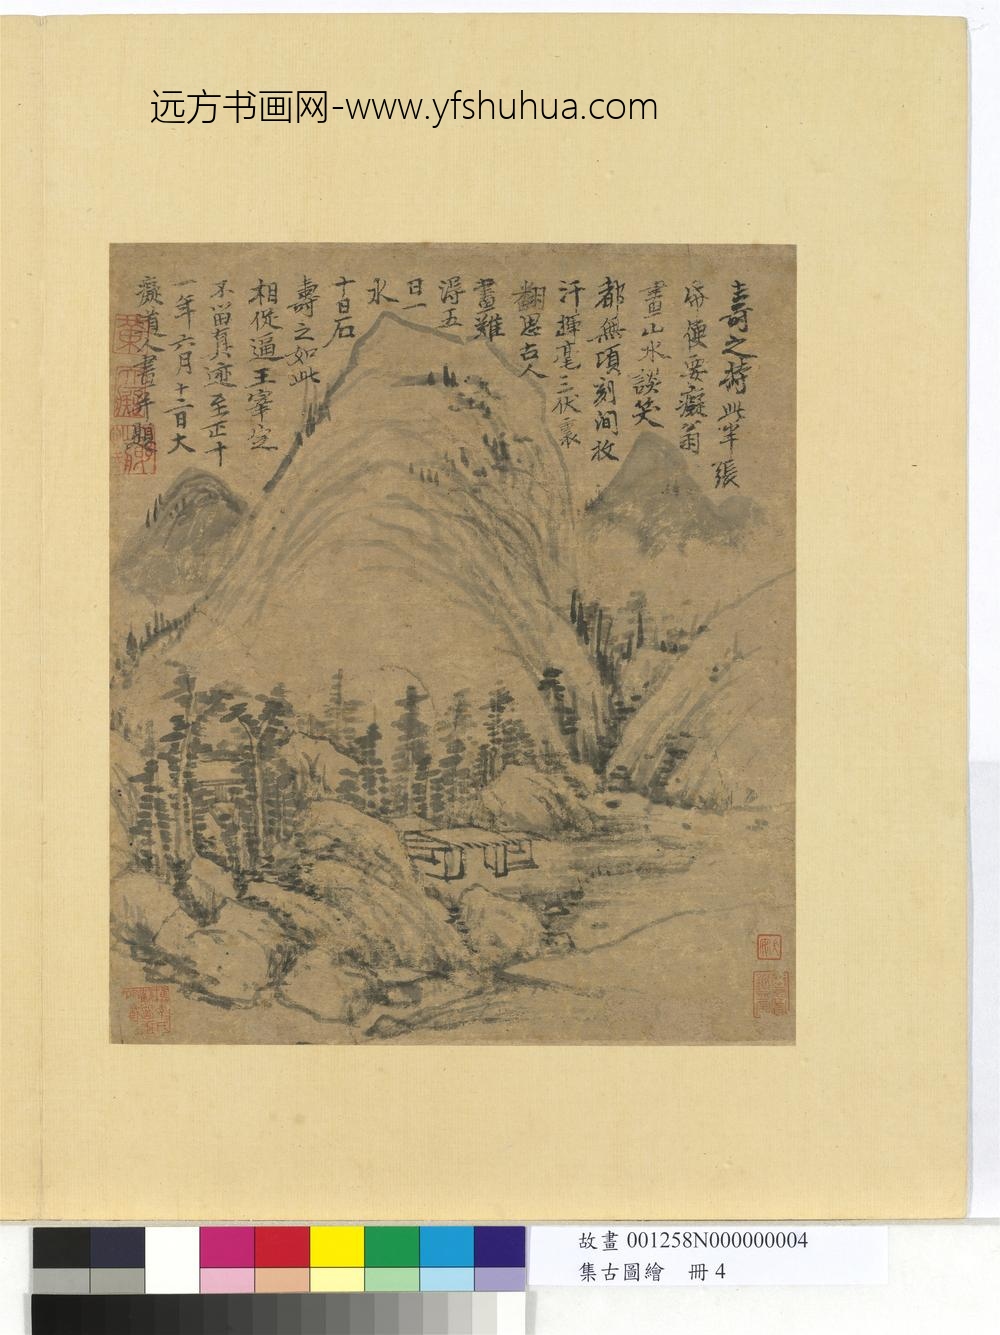 远方书画网-www.yfshuhua.com
壽之持此半張
帋便要癡翁
畫山水談笑
都無頃刻間放
汗揮毫三伏裏
翻思古人
畫難
得五
日一
水
十日石
壽之如此
相從逼王宰定
不留真迹至正十
一年六月十二日大
癡道人畫并題
故畫 001258N000000004
集古圖繪 冊 4